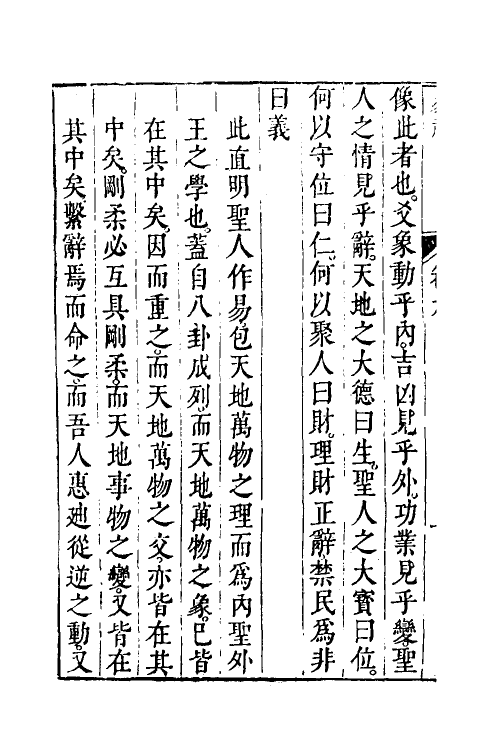 像此者也。爻象動乎內。吉凶見乎外。功業見乎變。聖
人之情見乎辭。天地之大德曰生。聖人之大寳曰位。
何以守位曰仁。何以聚人曰財。理財正辭禁民爲非
曰義
此直明聖人作易。包天地萬物之理而爲內聖外
王之學也。蓋自八卦成列。而天地萬物之象。已皆
在其中矣。因而重之。而天地萬物之交。亦皆在其
中矣。剛柔必互具剛柔。而天地事物之變。又皆在
其中矣。繫辭焉而命之。而吾人惠廸從逆之動。又